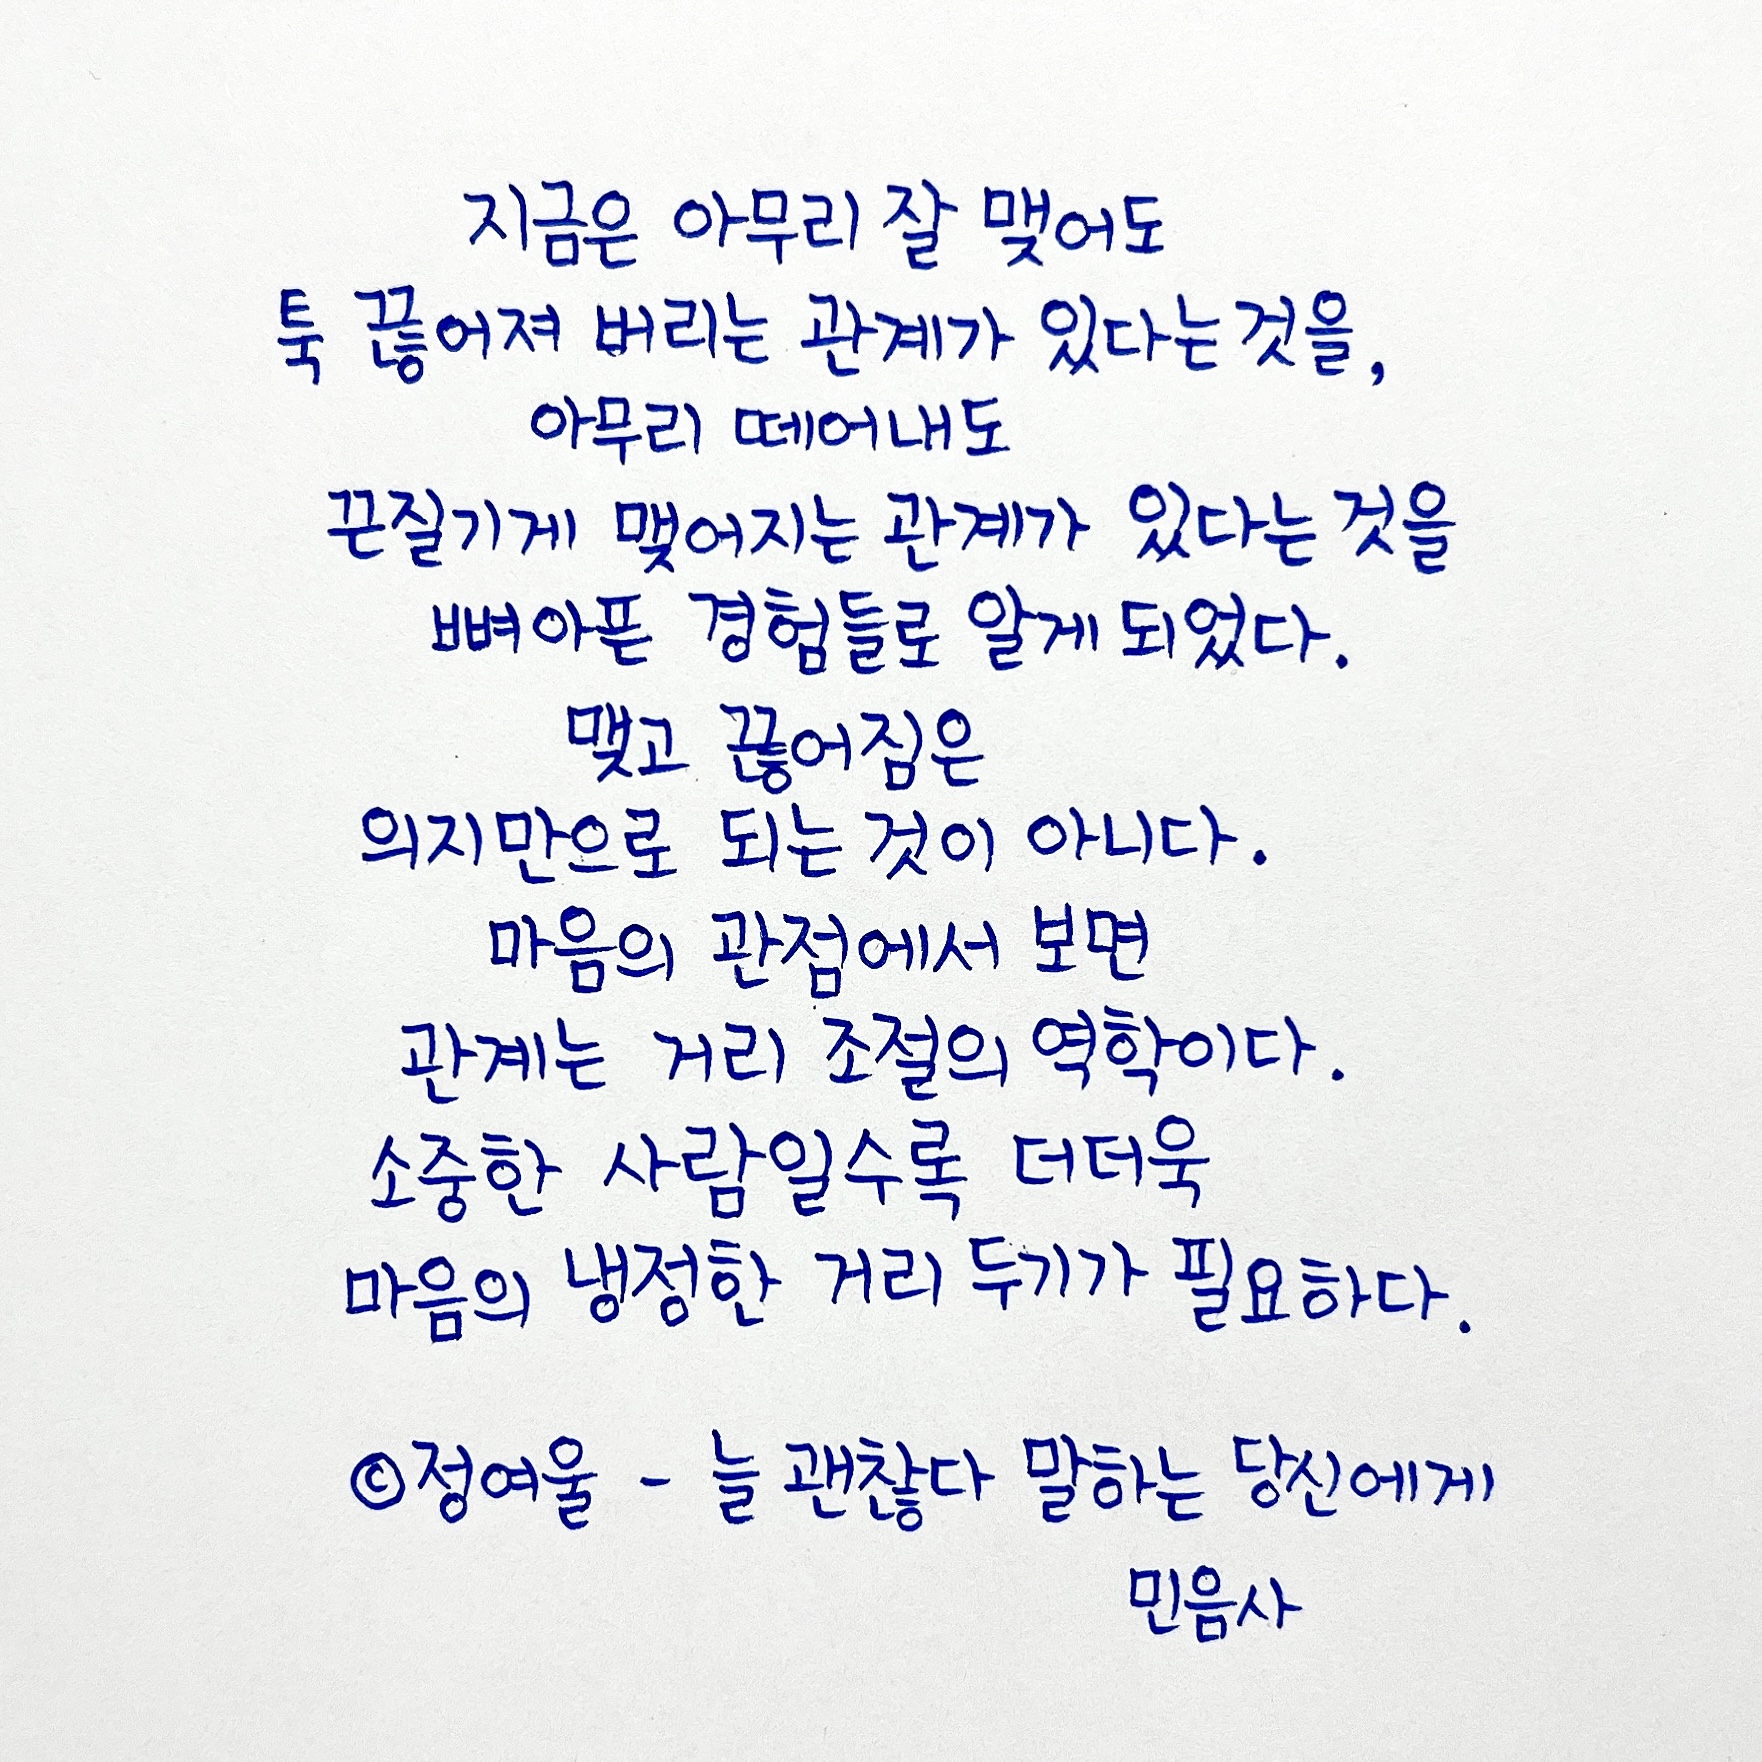 지금은 아무리 잘 맺어도
툭 끊어져 버리는 관계가 있다는 것을,
아무리 떼어내도
끈질기게 맺어지는 관계가 있다는 것을
뼈아픈 경험들로 알게 되었다.
맺고 끊어짐은
의지만으로 되는 것이 아니다.
마음의 관점에서 보면
관계는 거리 조절의 역학이다.
소중한 사람일수록 더더욱
마음의 냉정한 거리 두기가 필요하다.
©정여울 - 늘 괜찮다 말하는 당신에게
민음사